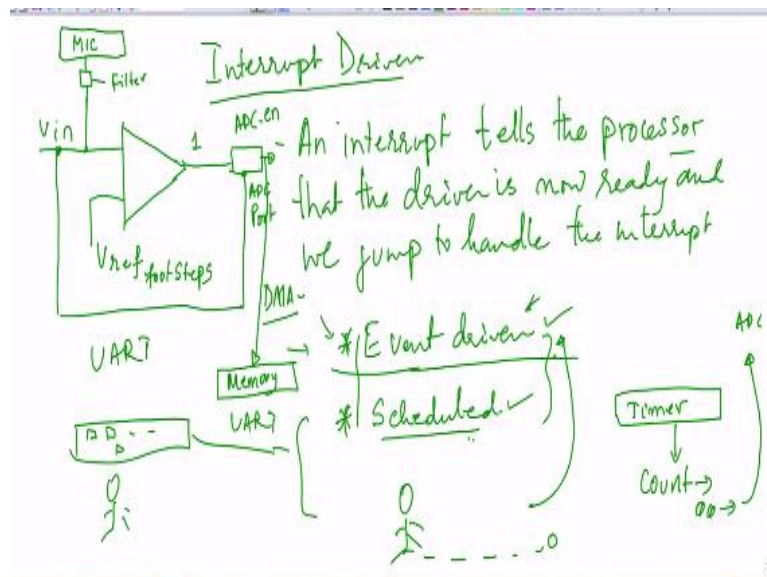 MIC
Filter
Interrupt Driven
Vin
1
ADC-en
ADC
Port
Vref footsteps
- An interrupt tells the processor
that the driver is now ready and
we jump to handle the interrupt
DMA-
UART
Memory
UART
* Event driven
* Scheduled
ADC
Timer
Count